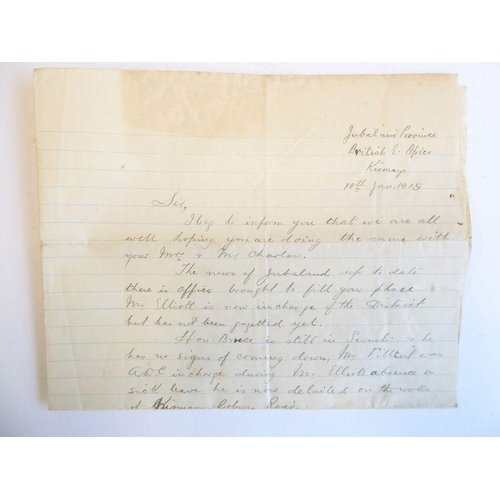 Jubaland Province
British E. Africa
Kismayu
10th Jan. 1915
Sir,
I beg to inform you that we are all
well hoping you are doing the same with
your Mrs & My Charlton.
The news of Jubaland up to date
there is officer brought to fill your place
Mr Elliott is now in charge of the District
but has not been gazetted yet.
Hon Bruce is still in Serenli & he
has no signs of coming down, Mr was
A.D.C in charge during Mr Elliott absence on
sick leave he is now detailed on the works
of Kismayu Road.